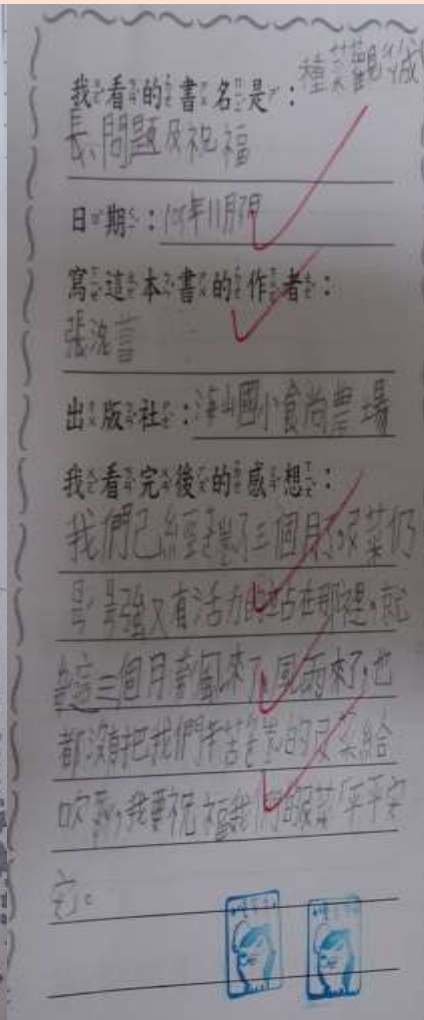 我看的書名是：種菜觀察成
長、問題及祝福
日期：108年11月
寫這本書的作者：
張洺言
出版社：海山國小食尚農場
我看完後的感想：
我們已經種了三個月了,菜仍
強又有活力的站在那裡。就
算這三個月颱風來了,風雨來了,也
都沒有把我們辛苦種的菜給
吹,我要祝福我們的菜「平平安
安。